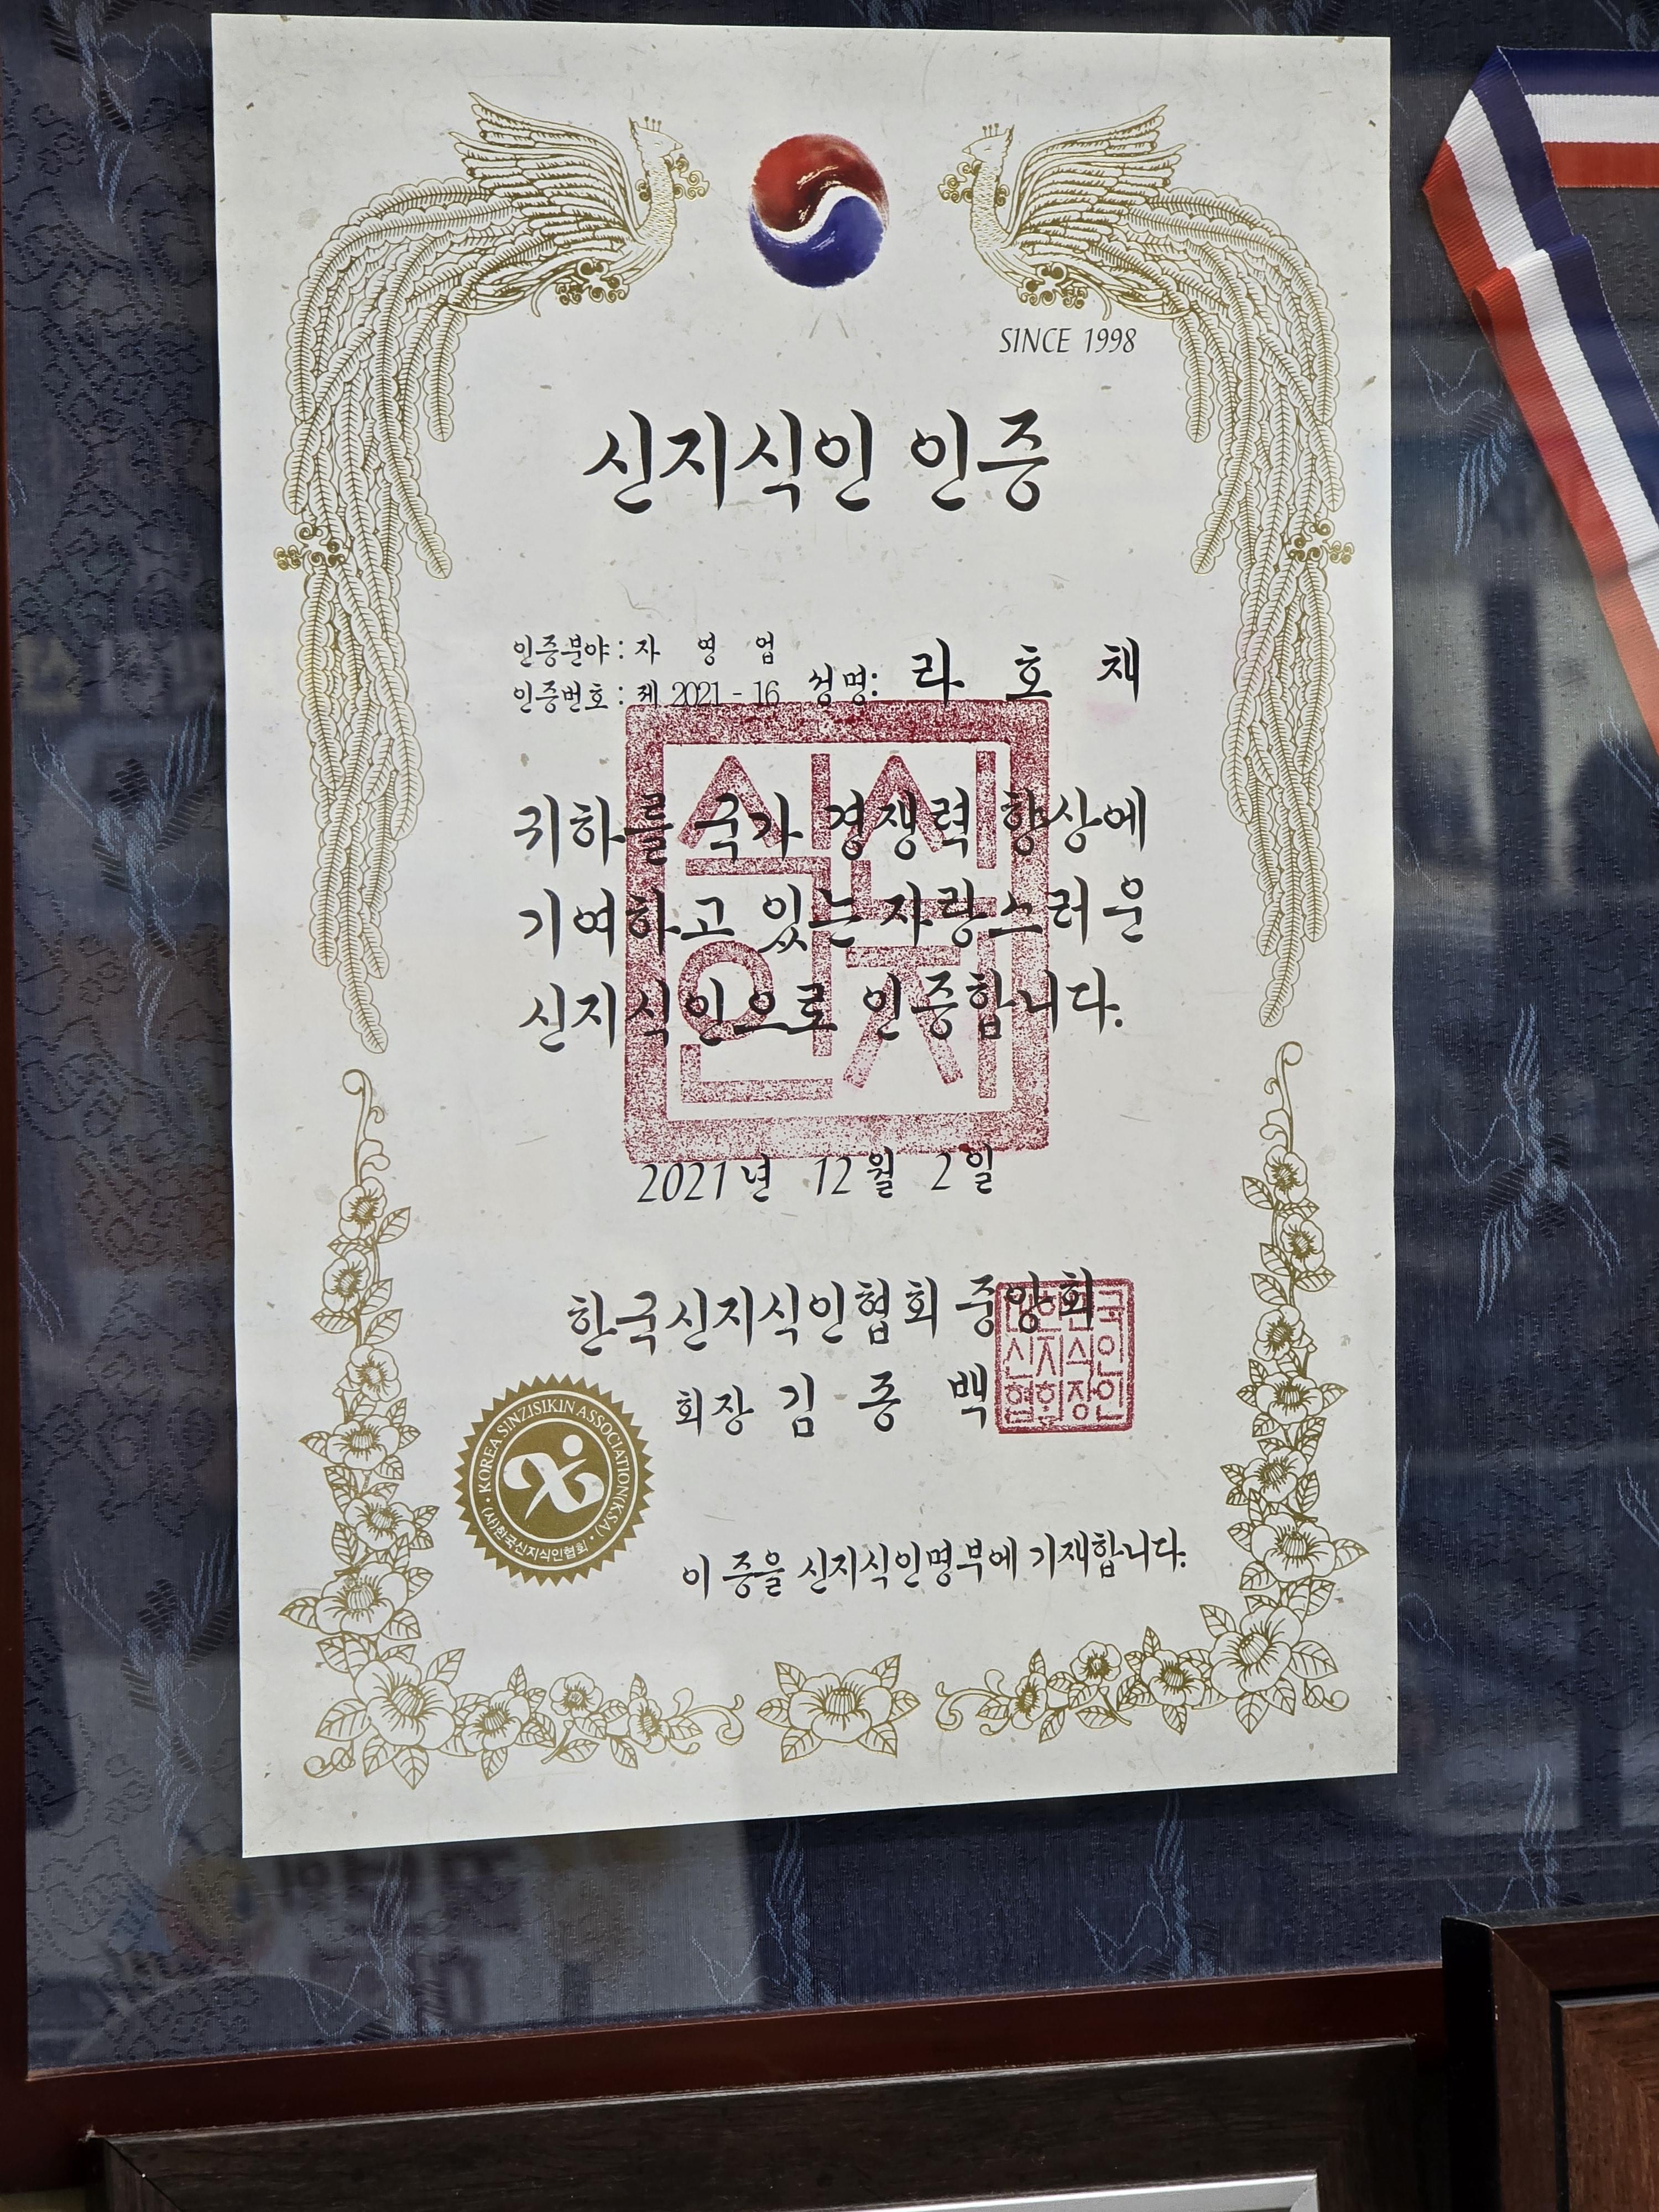 SINCE 1998
신지식인 인증
인증분야 : 자 영 업
인증번호 : 제 2021 - 16 성명: 라 호 채
귀하를 국가 경쟁력 향상에
기여하고 있는 자랑스러운
신지식인으로 인증합니다.
신지
식인
2021년 12월 2일
한국신지식인협회 중앙회
회장 김 종 백
신지식인
협회장인
KOREA SINZISIKIN ASSOCIATION(KSA)
(사)한국신지식인협회
이 증을 신지식인명부에 기재합니다.